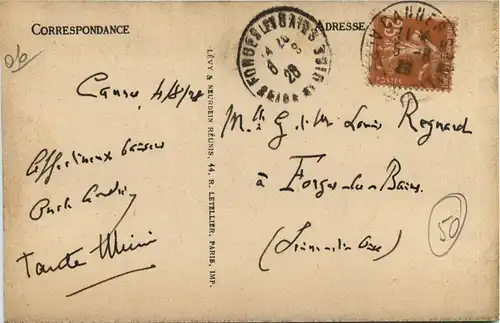 CORRESPONDANCE
ADRESSE
Cannes 4/8/28
Affectueux baisers
Tante Mimi
LÉVY & NEURDEIN RÉUNIS, 44, R. LETELLIER, PARIS, IMP.
FORGES LES BAINS
6 8
28
SEINE ET OISE
CANNES
28
POSTES
Louis Regnard
à Forges-les-Bains
(Seine-et-Oise)
50